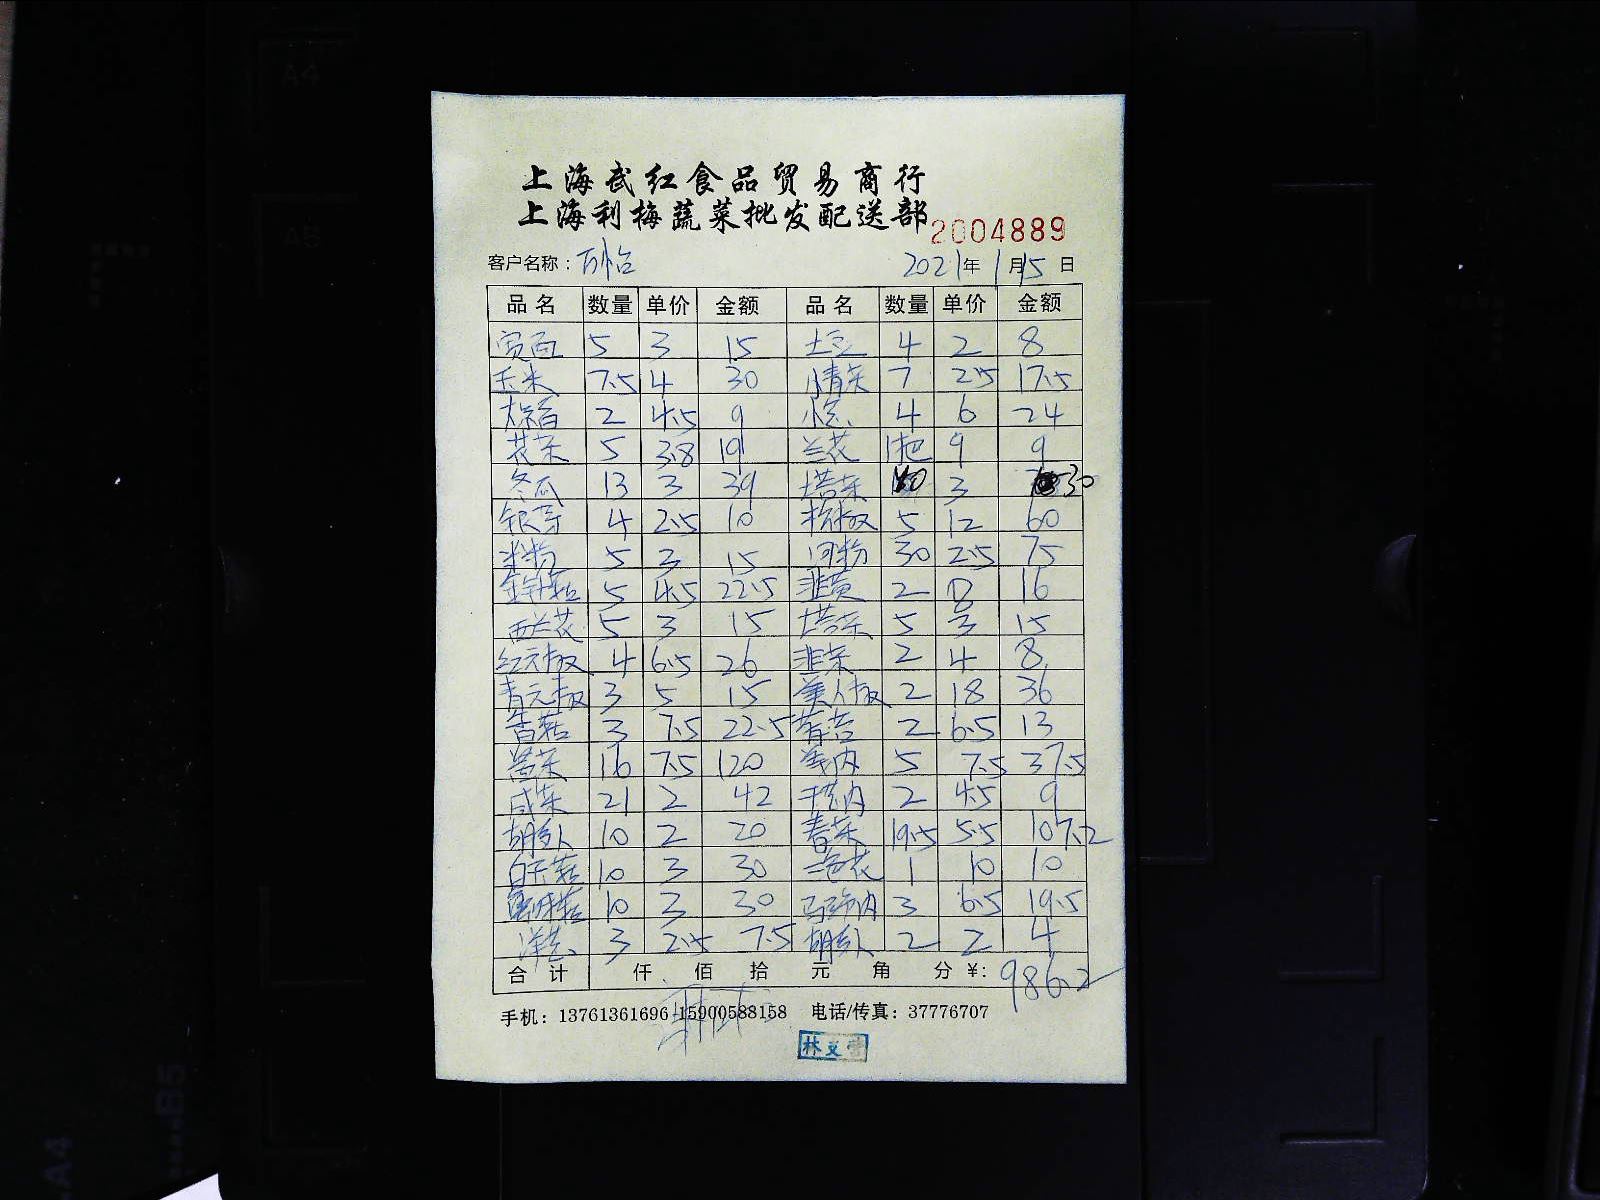 上海武红食品贸易商行
上海利梅蔬菜批发配送部
2004889
客户名称: 2021年1月15日
品名 数量 单价 金额 品名 数量 单价 金额
5 3 15 土豆 4 2 8
玉米 7.5 4 30 小青菜 7 2.5 17.5
2 4.5 9 小葱 4 6 24
花菜 5 3.8 19 兰花 1把 9 9
冬瓜 13 3 39 塔菜 3 30
银芽 4 2.5 10 5 12 60
米粉 5 3 15 河粉 30 2.5 75
金针菇 5 4.5 22.5 韭黄 2 8 16
西兰花 5 3 15 塔菜 5 3 15
红元椒 4 6.5 26 韭菜 2 4 8
青元椒 3 5 15 美人椒 2 18 36
香菇 3 7.5 22.5 2 6.5 13
16 7.5 120 5 7.5 37.5
咸菜 21 2 42 2 4.5 9
胡萝卜 10 2 20 19.5 5.5 107.2
白玉菇 10 3 30 1 10 10
10 3 30 3 6.5 19.5
洋葱 3 2.5 7.5 胡萝卜 2 2 4
合计 仟 佰 拾 元 角 分 ¥: 986.2
手机: 13761361696 15900588158 电话/传真: 37776707